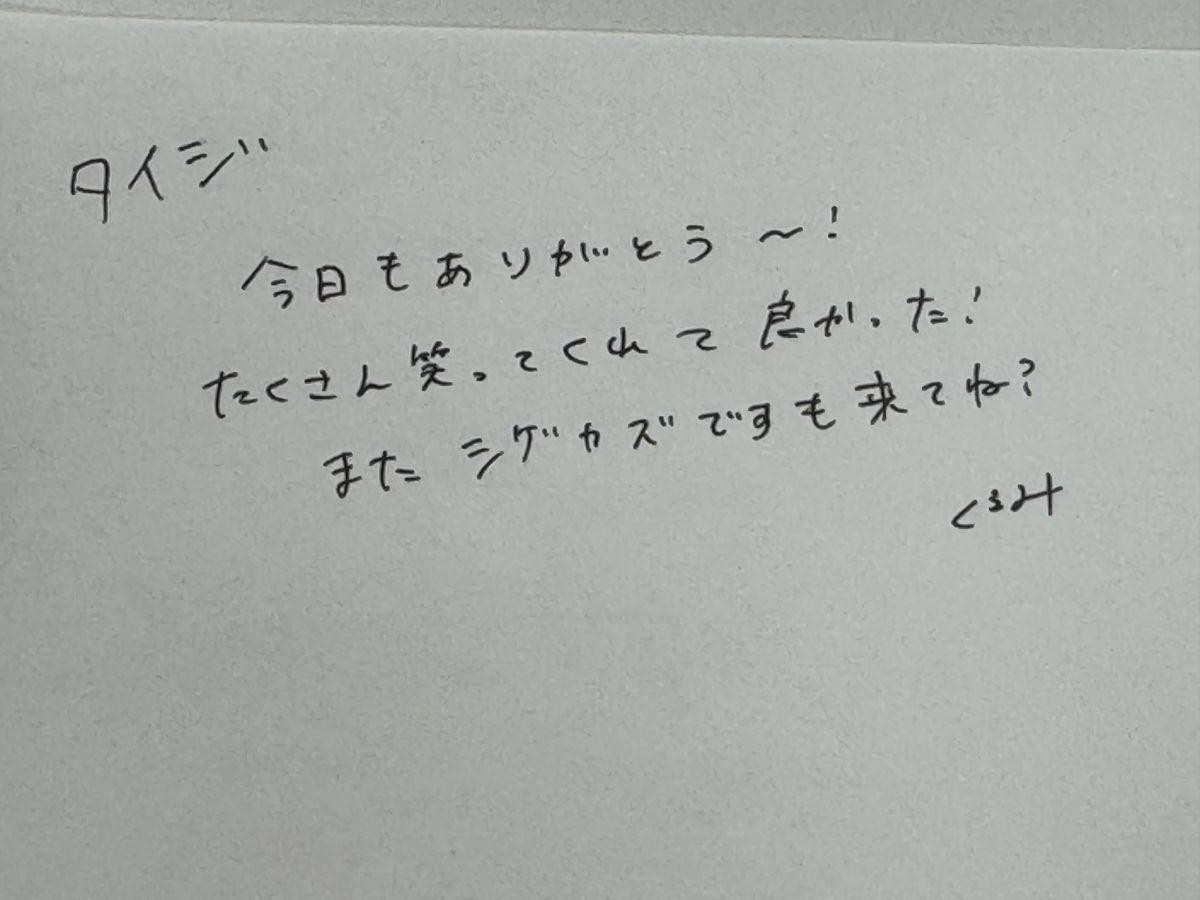 タイジ
今日もありがとう〜!
たくさん笑ってくれて良かった!
またシゲカズですも来てね?
くるみ